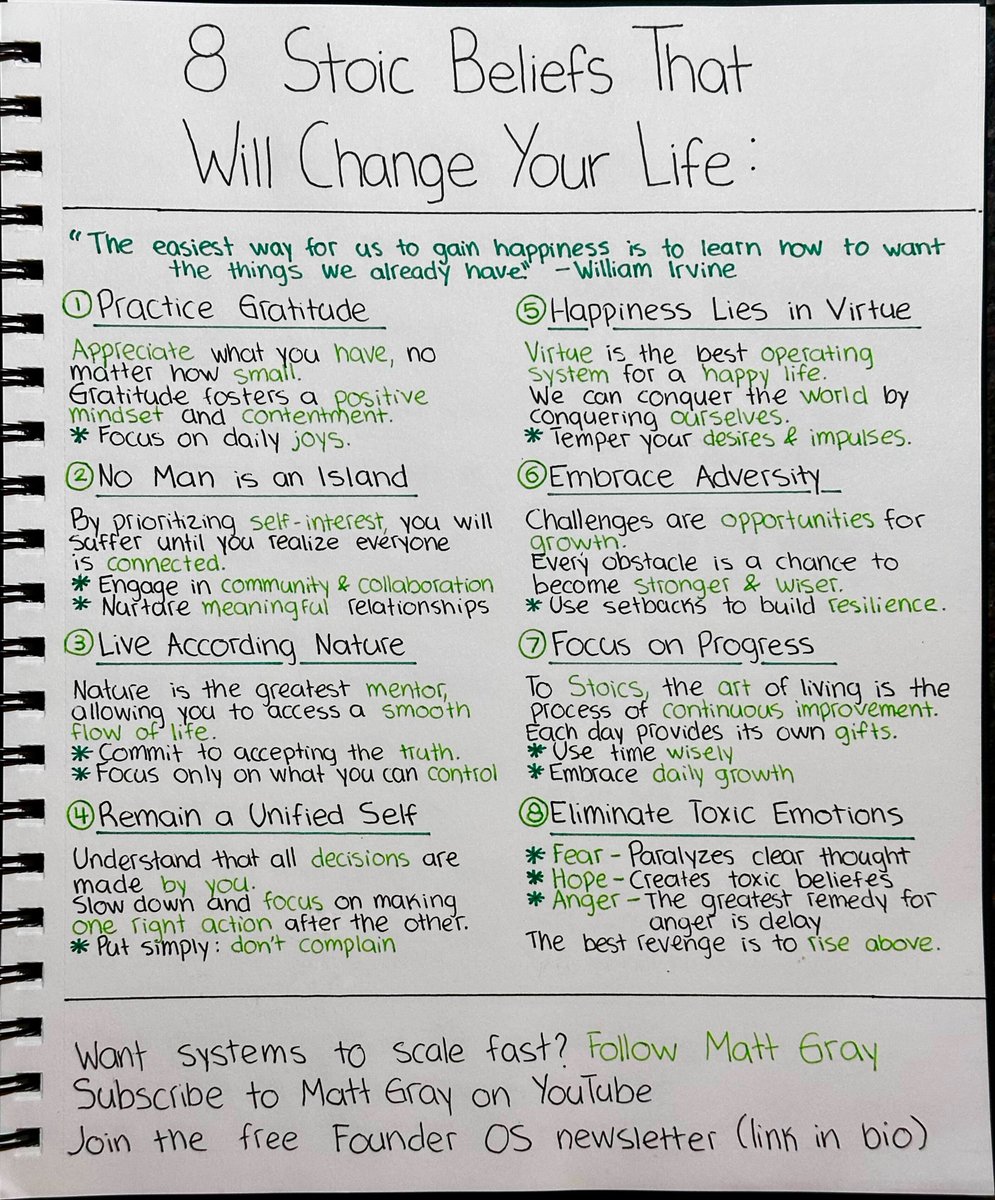 8 Stoic Beliefs That
Will Change Your Life:
"The easiest way for us to gain happiness is to learn how to want
the things we already have." - William Irvine
① Practice Gratitude
Appreciate what you have, no
matter how small.
Gratitude fosters a positive
mindset and contentment.
* Focus on daily joys.
② No Man is an Island
By prioritizing self-interest, you will
suffer until you realize everyone
is connected.
* Engage in community & collaboration
* Nurture meaningful relationships
③ Live According Nature
Nature is the greatest mentor,
allowing you to access a smooth
flow of life.
* Commit to accepting the truth.
* Focus only on what you can control
④ Remain a Unified Self
Understand that all decisions are
made by you.
Slow down and focus on making
one right action after the other.
* Put simply: don't complain
⑤ Happiness Lies in Virtue
Virtue is the best operating
system for a happy life.
We can conquer the world by
conquering ourselves.
* Temper your desires & impulses.
⑥ Embrace Adversity
Challenges are opportunities for
growth.
Every obstacle is a chance to
become stronger & wiser.
* Use setbacks to build resilience.
⑦ Focus on Progress
To Stoics, the art of living is the
process of continuous improvement.
Each day provides its own gifts.
* Use time wisely
* Embrace daily growth
⑧ Eliminate Toxic Emotions
* Fear - Paralyzes clear thought
* Hope - Creates toxic beliefes
* Anger - The greatest remedy for
anger is delay
The best revenge is to rise above.
Want systems to scale fast? Follow Matt Gray
Subscribe to Matt Gray on YouTube
Join the free Founder OS newsletter (link in bio)